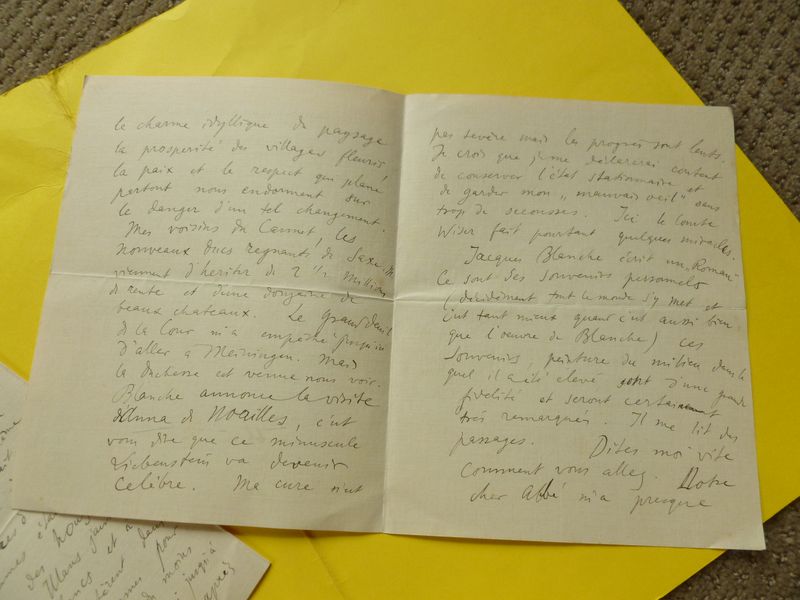 le charme idyllique du paysage
la prosperité des villages fleuris
la paix et le respect qui plane
partout nous endorment sur
le danger d'un tel changement.
Mes voisins du Cannet, les
nouveaux ducs regnants de Saxe M.
viennent d'heriter de 2 1/2 millions
de rente et d'une douzaine de
beaux chateaux. Le grand deuil
de la Cour m'a empeché jusqu'ici
d'aller a Meiningen. Mais
la duchesse est venue nous voir.
Blanche annonce la visite
d'Anna de Noailles, c'est
vous dire que ce minuscule
Liebenstein va devenir
celèbre. Ma cure n'est
pas sevère mais les progrès sont lents.
Je crois que je me declarerai content
de conserver l'état stationnaire et
de garder mon „mauvais oeil" sans
trop de secousses. Ici le Comte
Wiser fait pourtant quelques miracles.
Jacques Blanche écrit un „Roman"
Ce sont des souvenirs personnels
(decidément tout le monde s'y met et
c'est tant mieux quand c'est aussi bien
que l'oeuvre de Blanche) ces
souvenirs, peinture du milieu dans le
quel il a été elevé sont d'une grande
fidelité et seront certainement
très remarqués. Il me lit des
passages. Dites moi vite
comment vous allez. Notre
cher Abbé m'a presque
des
du moins
jusqu'à
après